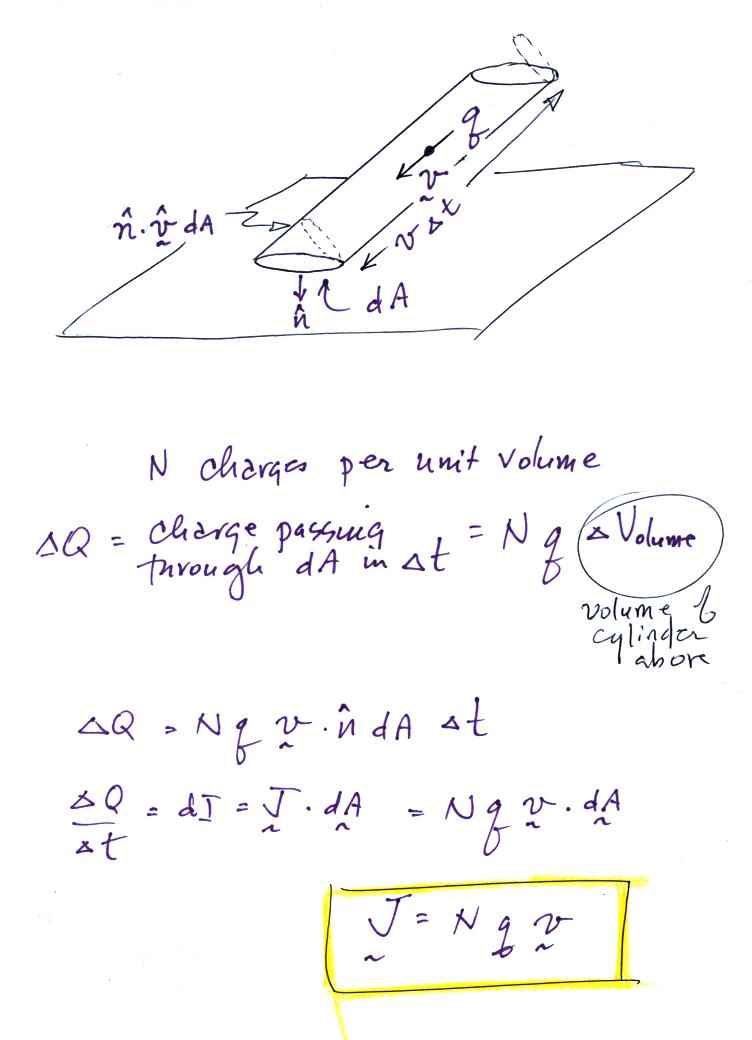 q
v
v Δt
n̂ · v̂ dA
n̂
dA
N charges per unit volume
ΔQ = charge passing through dA in Δt = N q Δ Volume
volume of
cylinder
above
ΔQ = N q v · n̂ dA Δt
ΔQ/Δt = dI = J · dA = N q v · dA
J = N q v